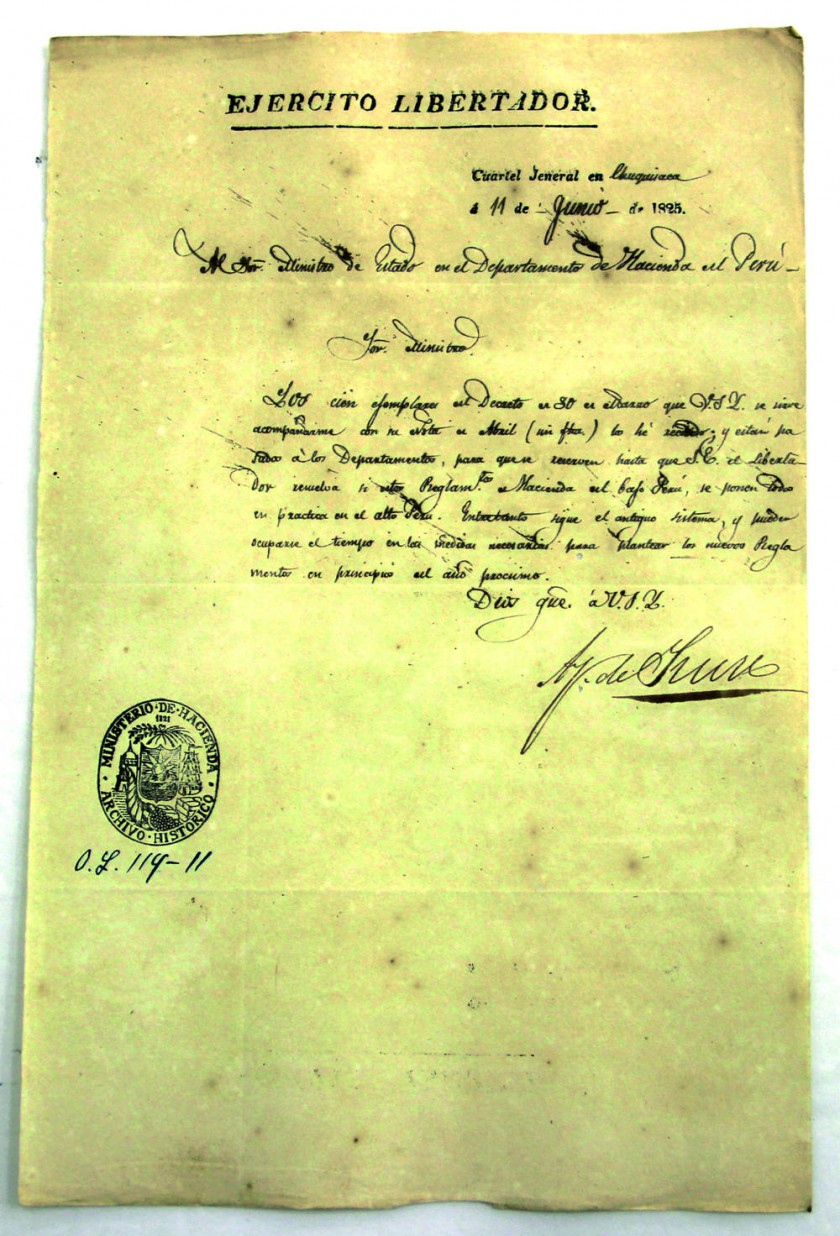 EJERCITO LIBERTADOR.
Cuartel Jeneral en Chuquisaca
á 11 de Junio de 1825.
Al Sor. Ministro de Estado en el Departamento de Hacienda del Perú
Sor. Ministro
Los cien ejemplares del Decreto de 30 de Marzo que V.S.Y. se sirve
acompañarme con su Nota de Abril (sin fha.) los hé recibido; y están pa
sados á los Departamentos, para que se reserven hasta que S.E. el Liberta
dor resuelva si estos Reglam.tos de Hacienda del bajo Perú, se ponen todos
en practica en el alto Perú. Entretanto sigue el antiguo sistema, y pueden
ocuparse el tiempo en las medidas necesarias para plantear los nuevos Regla
mentos en principios del año procsimo.
Dios gue. á V.S.Y.
A.J. de Sucre
MINISTERIO·DE·HACIENDA
1821
ARCHIVO·HISTORICO
O.L. 119-11